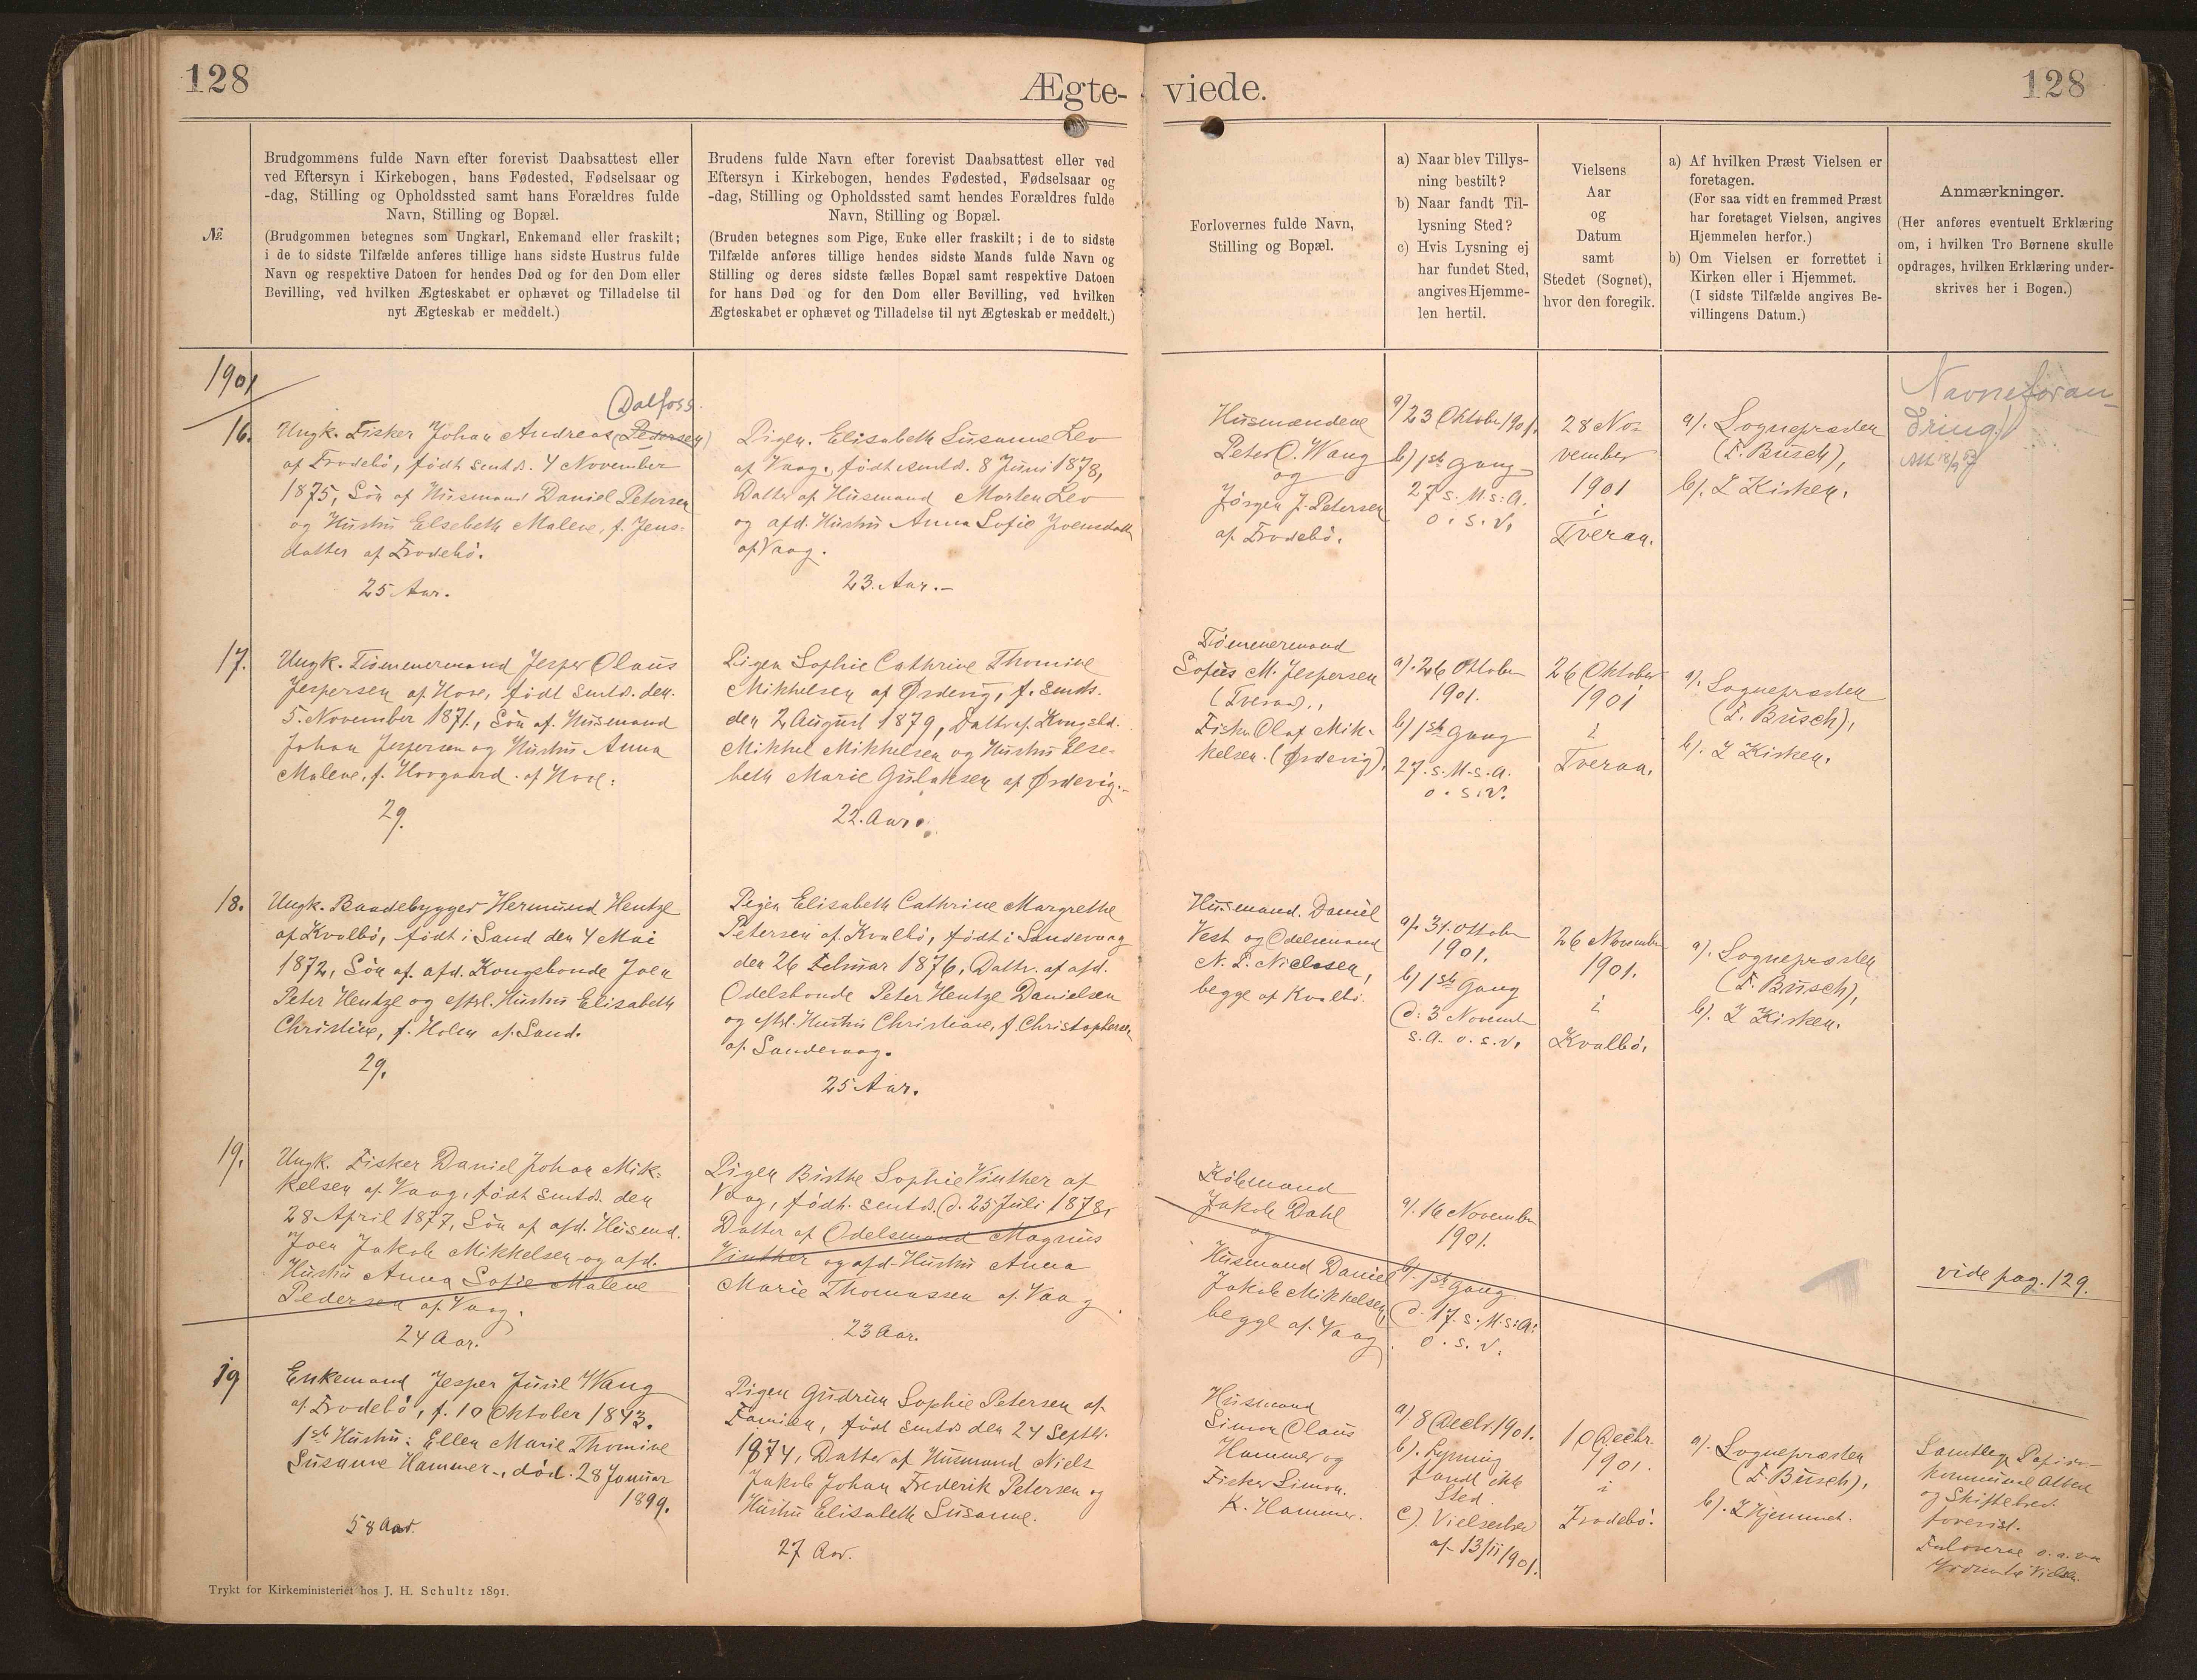 128
Ægte-
viede.
128
№
Brudgommens fulde Navn efter forevist Daabsattest eller
ved Eftersyn i Kirkebogen, hans Fødested, Fødselsaar og
-dag, Stilling og Opholdssted samt hans Forældres fulde
Navn, Stilling og Bopæl.
(Brudgommen betegnes som Ungkarl, Enkemand eller fraskilt;
i de to sidste Tilfælde anføres tillige hans sidste Hustrus fulde
Navn og respektive Datoen for hendes Død og for den Dom eller
Bevilling, ved hvilken Ægteskabet er ophævet og Tilladelse til
nyt Ægteskab er meddelt.)
Brudens fulde Navn efter forevist Daabsattest eller ved
Eftersyn i Kirkebogen, hendes Fødested, Fødselsaar og
-dag, Stilling og Opholdssted samt hendes Forældres fulde
Navn, Stilling og Bopæl.
(Bruden betegnes som Pige, Enke eller fraskilt; i de to sidste
Tilfælde anføres tillige hendes sidste Mands fulde Navn og
Stilling og deres sidste fælles Bopæl samt respektive Datoen
for hans Død og for den Dom eller Bevilling, ved hvilken
Ægteskabet er ophævet og Tilladelse til nyt Ægteskab er meddelt.)
Forlovernes fulde Navn,
Stilling og Bopæl.
a) Naar blev Tillys-
ning bestilt?
b) Naar fandt Til-
lysning Sted?
c) Hvis Lysning ej
har fundet Sted,
angives Hjemme-
len hertil.
Vielsens
Aar
og
Datum
samt
Stedet (Sognet),
hvor den foregik.
a) Af hvilken Præst Vielsen er
foretagen.
(For saa vidt en fremmed Præst
har foretaget Vielsen, angives
Hjemmelen herfor.)
b) Om Vielsen er forrettet i
Kirken eller i Hjemmet.
(I sidste Tilfælde angives Be-
villingens Datum.)
Anmærkninger.
(Her anføres eventuelt Erklæring
om, i hvilken Tro Børnene skulle
opdrages, hvilken Erklæring under-
skrives her i Bogen.)
1901
16.
Dalfoss.
Ungk. Fisker Johan Andreas (Pedersen)
af Frodebö, födt smtds. 4 November
1875, Sön af Husmand Daniel Petersen
og Hustru Elsebeth Malene, f. Jens-
datter af Frodebö.
25 Aar.
Pigen. Elisabeth Susanne Lev
af Vaag, födt smtds. 8 Juni 1878,
Datter af Husmand Morten Lev
og afd. Hustru Anna Sofie Joensdatt
af Vaag.
23. Aar.-
Husmændene
Peter O. Wang
og
Jörgen J. Petersen
af Frodebö.
a/ 23 Oktober 1901.
b) 1ste Gang
27 s. M. s. A.
o. s. v.
28 No-
vember
1901
i
Tveraa.
a/. Sognepræsten
(F. Busch),
b/. I Kirken.
Navneforan-
dring!
17.
Ungk. Tömmermand Jesper Olaus
Jespersen af Hove, födt smtds. den.
5. November 1871, Sön af Husmand
Johan Jespersen og Hustru Anna
Malene, f. Hovgaard. af Hove.
29.
Pigen Sophie Cathrine Thomine
Mikkelsen af Ørdevig, f. smtds.
den 2 August 1879, Datter af Kongsbd.
Mikkel Mikkelsen og Hustru Else-
beth Marie Gulaksen af Ørdevig.
22. Aar.
Tömmermand
Sofus M. Jespersen
(Tveraa).,
Fisker Olaf Mik-
kelsen. (Ørdevig).
a/. 26 Oktober
1901.
b/ 1ste Gang
27. s. M. s. A.
o. s. v.
26 Oktober
1901
i
Tveraa.
a/. Sognepræsten
(F. Busch),
b/. I Kirken.
18.
Ungk. Baadebygger Hermund Hentze
af Kvalbö, födt i Sand den 4 Mai
1872, Sön af. afd. Kongsbonde Joen
Peter Hentze og eftrl. Hustru Elisabeth
Christine, f. Holm af. Sand.
29.
Pigen Elisabeth Cathrine Margrethe
Petersen af. Kvalbö, födt i Sandevaag
den 26 Februar 1876, Dattr. af afd.
Odelsbonde Peter Hentze Danielsen
og eftrl. Hustru Christiane, f. Christophersen
af. Sandevaag.
25 Aar.
Husmand. Daniel
Vest og Odelsmand
N. P. Nielsen,
begge af Kvalbö.
a/. 31. Oktober
1901.
b/ 1ste Gang
d: 3 November
s. A. o. s. v.
26 November
1901.
i
Kvalbö.
a/. Sognepræsten
(F. Busch),
b/. I Kirken.
19.
Ungk. Fisker Daniel Johan Mik-
kelsen af. Vaag, födt smtds. den
28 April 1877, Sön af afd. Husmd.
Joen Jakob Mikkelsen og afd.
Hustru Anna Sofie Malene
Pedersen af Vaag.
24 Aar.
Pigen Birthe Sophie Vinther af
Vaag, födt. smtds. d. 25 Juli 1878,
Datter af Odelsmand Magnus
Vinther og afd. Hustru Anna
Marie Thomassen af. Vaag.
23 Aar.
Købmand
Jakob Dahl
og
Husmand Daniel
Jakob Mikkelsen,
begge af. Vaag.
a/. 16 November
1901.
b/. 1ste Gang
d. 17. s. M. s. A.
o. s. v.
vide pag. 129.
19
Enkemand Jesper Juul Wang
af. Frodebö, f. 10 Oktober 1843.
1ste Hustru: Ellen Marie Thomine
Susanne Hammer, död. 28 Januar
1899.
58 Aar.
Pigen Gudrun Sophie Petersen af.
Famien, födt smtds den 24 Septbr.
1874, Datter af Husmand Niels
Jakob Johan Frederik Petersen og
Hustru Elisabeth Susanne.
27 Aar.
Husmand
Simon Olaus
Hammer og
Fisker Simon.
K. Hammer.
a/. 8 Decbr. 1901.
b/. Lysning
fandt ikke
Sted.
c). Vielsesbrev
af 13/11 1901.
10 Decbr.
1901.
i
Frodebö.
a/. Sognepræsten
(F. Busch),
b/. I Hjemmet.
Samtlige Papirer
og Skiftebrev
forevist.
Forloverne
Trykt for Kirkeministeriet hos J. H. Schultz 1891.